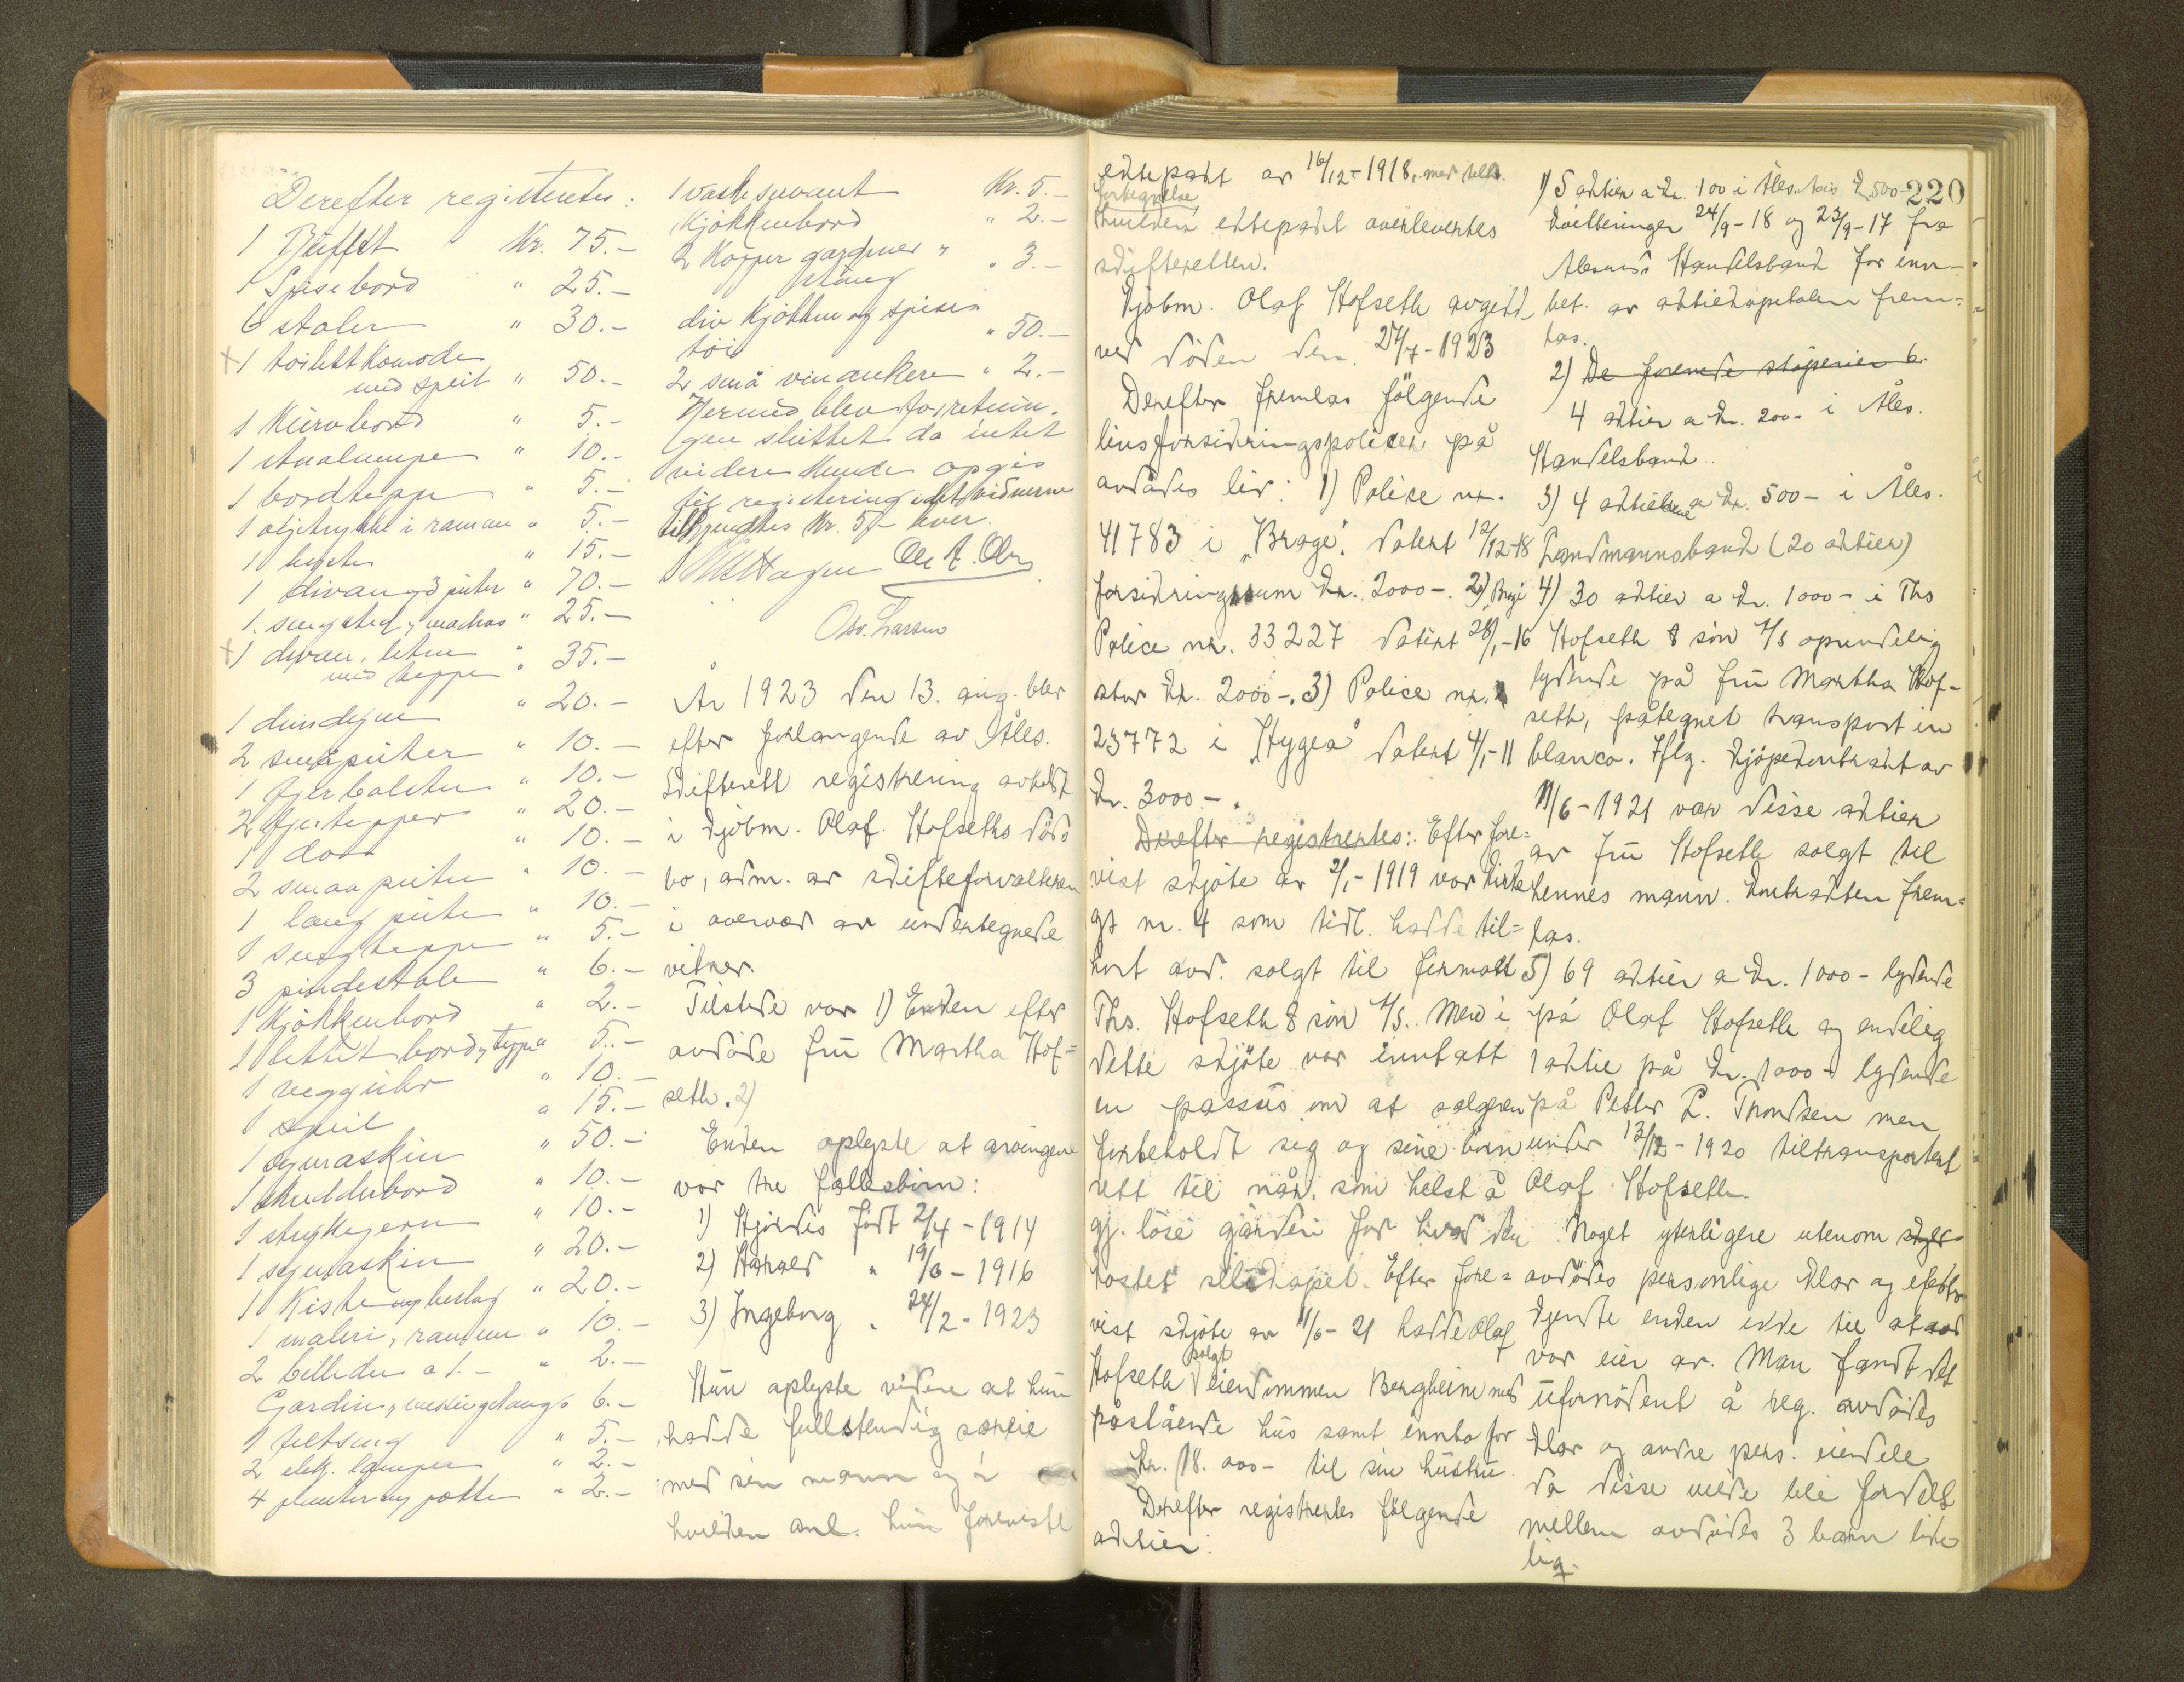 Derefter registrertes:
1 Büffet Kr. 75.-
1 Spisebord " 25.-
6 stoler " 30.-
+1 toilettkomode
med speil " 50.-
1 Kürvbord " 5.-
1 staalampe " 10.-
1 bordteppe " 5.-
1 oljetrykk i ramme " 5.-
1 " 15.-
1 divan og 3 puter " 70.-
1. sengsted, madras " 25.-
+1 divan, liten "
med teppe " 35.-
1 dundyne " 20.-
2 små püter " 10.-
1 fjerbolster " 10.-
2 fjertepper " 20.-
1 do " 10.-
2 smaa püter " 10.-
1 lang püte " 10.-
1 sengteppe " 5.-
3 pindestole " 6.-
1 Kjøkkenbord " 2.-
1 littet bord, teppe " 5.-
1 veggühr " 10.-
1 speil " 15.-
1 symaskin " 50.-
1 " 10.-
1 strykejern " 10.-
1 symaskin " 20.-
1 Kiste beslag " 20.-
1 maleri, ramme " 10.-
2 billeder a 1.- " 2.-
Gardin, messingstang " 6.-
1 feltseng " 5.-
2 elek. lamper " 2.-
4 planter og potter " 2.-
1 vaskeservant Kr. 5.-
Kjøkkenbord " 2.-
2 Kopper gardiner "
stang " 3.-
div Kjøkken og spise-
töi " 50.-
2 små vinankere " 2.-
Hermed blev forretnin-
gen sluttet da intet
videre kunde opgis
til registrering idet vidnerne
tilkjendtes Kr. 5,- hver.
Hagen Ole A.
Osv. Larsen
År 1923 den 13. aug. blev
efter forlangende av Åles.
skifterett registrering avholdt
i kjøbm. Olaf Hofseths døds
bo, adm. av skifteforvalteren
i overvær av undertegnede
vitner.
Tilstede var 1) Enken efter
avdøde frü Martha Hof=
seth. 2)
Enken oplyste at arvingene
var tre fællesbörn:
1) Hjördis født 2/4-1914
2) Harald " 19/6-1916
3) Ingeborg " 24/2-1923
Hün oplyste videre at hün
hadde fullstendig særeie
med sin mann og i
hvilken anl. hün foreviste
ektepakt av 16/12-1918, med till.
fortegnelse
hvilken ektepakt overlevertes
skifteretten.
Kjøbm. Olaf Hofseth avgikk
ved döden den 27/7-1923
Derefter fremlas følgende
livsforsikringspoliser på
avdødes liv: 1) Police nr.
41783 i "Brage". Datert 12/12-18
forsikringssum Kr. 2000-. 2) Brage
Police nr. 33227 datert 28/1-16
stor Kr. 2000-. 3) Police nr.
23772 i "Hygea" datert 4/1-11
Kr. 3000-.
Derefter registrertes: Efter fore=
vist skjöte av 2/1-1919 var Kirke
gt nr. 4 som tidl. hadde til=
hørt avd. solgt til firmaet
Ths. Hofseth & sön A/S. Men i
dette skjöte var inntatt
en passüs om at selgeren
forbeholdt sig og sine börn
rett til når som helst å
gj. løse gården for hvad den
kostet selskapet. Efter fore=
vist skjöte av 11/6-21 hadde Olaf
Hofseth solgt eiendommen Bergheim med
påstående hüs samt innbo for
Kr. 18.000- til sin hüstrü.
Derefter registrertes følgende
aktier:
220
1) 5 aktier a Kr. 100 i Åles. Avis Kr. 500-
Kvitteringer 24/9-18 og 23/9-17 fra
Alesunds Handelsbank for inn-
bet. av aktiekapitalen frem=
las.
2) De forenede støperier 6.
4 aktier a Kr. 200- i Åles.
Handelsbank.
3) 4 aktiebreve a Kr. 500- i Åles.
Landmannsbank (20 aktier)
4) 30 aktier a Kr. 1000- i Ths
Hofseth & sön A/S oprindelig
lydende på frü Martha Hof-
seth, påtegnet transport in
blanco. Iflg. kjöpekontrakt av
11/6-1921 var disse aktier
av frü Hofseth solgt til
hennes mann. Kontrakten frem=
las.
5) 69 aktier a Kr. 1000- lydende
på Olaf Hofseth og endelig
1 aktie på Kr. 1000- lydende
på Petter L. Thondsen men
under 13/12-1920 tiltransportert
Olaf Hofseth.
Noget ytterligere utenom
avdødes personlige klær og efekter
kjendte enken ikke til at avd
var eier av. Man fandt det
ufornødent å reg. avdødes
klær og andre pers. eiendele
da disse vilde bli fordelt
mellem avdødes 3 barn like
lig.